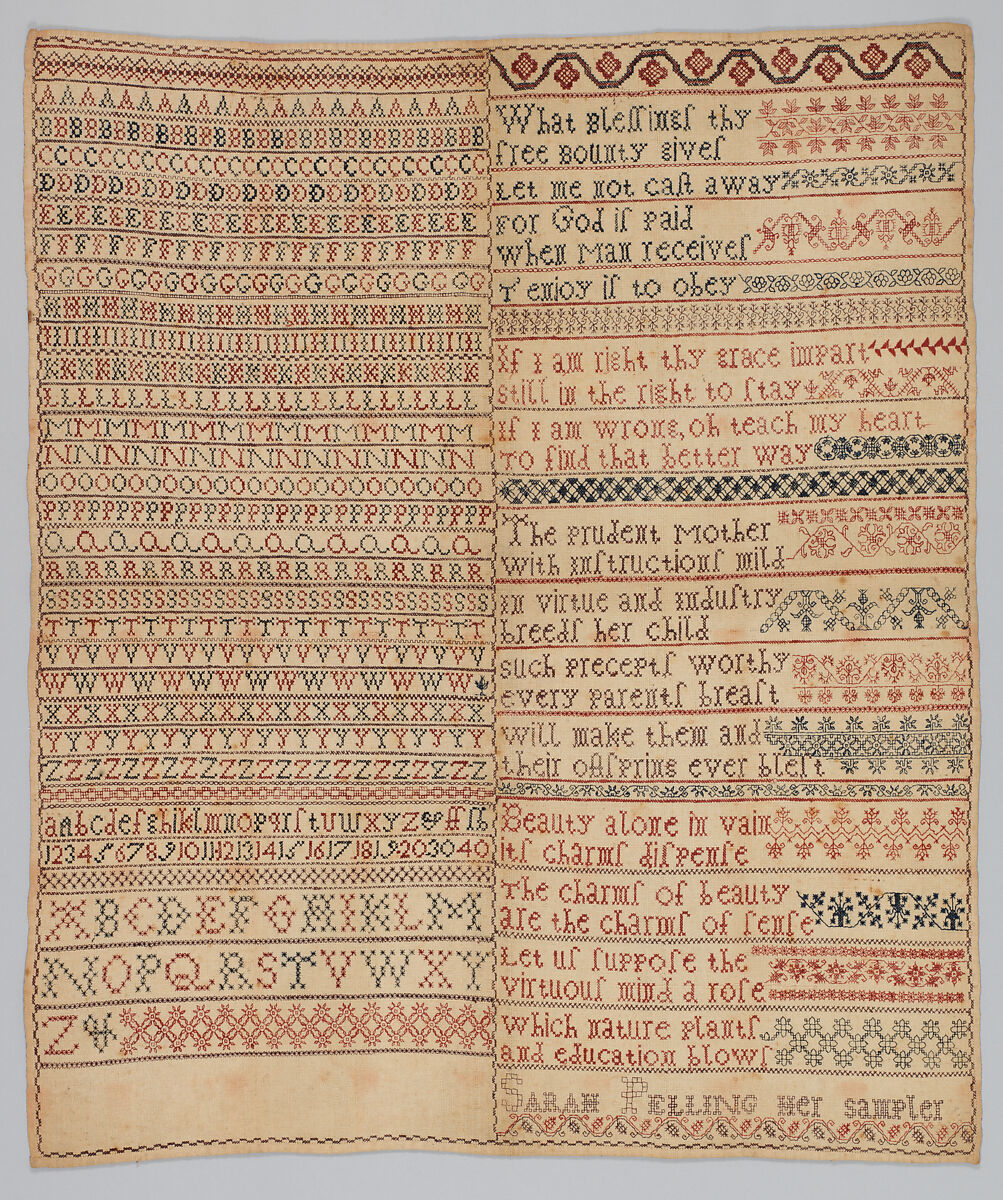 AAAAAAAAAAAAAAAAAAAAAAAA
BBBBBBBBBBBBBBBBBBBBBBBBBBBBBBB
CCCCCCCCCCCCCCCCCCCCCCCCCCCCCC
DDDDDDDDDDDDDDDDDDDDDDDDDD
EEEEEEEEEEEEEEEEEEEEEEEEEEE
FFFFFFFFFFFFFFFFFFFFFFFFFFF
GGGGGGGGGGGGGGGGGGGGGGGG
HHHHHHHHHHHHHHHHHHHHHHHHHH
IIIIIIIIIIIIIIIIIIIIIIIIIIIIIIIIII
KKKKKKKKKKKKKKKKKKKKKKKKKK
LLLLLLLLLLLLLLLLLLLLLLLLLL
MMMMMMMMMMMMMMMMMM
NNNNNNNNNNNNNNNNNN
OOOOOOOOOOOOOOOOOOOOOOOOOOO
PPPPPPPPPPPPPPPPPPPPPPPPPPPPP
QQQQQQQQQQQQQQQQQQ
RRRRRRRRRRRRRRRRRRRRRRRRR
SSSSSSSSSSSSSSSSSSSSSSSSSSSSSSSS
TTTTTTTTTTTTTTTTTTTTTT
VVVVVVVVVVVVVVVVVVVVVV
WWWWWWWWWWWWWWW
XXXXXXXXXXXXXXXXXXXXXXX
YYYYYYYYYYYYYYYYYYYYYYYY
ZZZZZZZZZZZZZZZZZZZZZZ
aabcdefghiklmnopqrſstuwxyz& ſſ ſb
12345678910111213141516171819203040
ABCDEFGHIKLM
NOPQRSTVWXY
Z&
What Bleſſingſ thy
free Bounty giveſ
Let me not caſt away
For God iſ paid
when Man receiveſ
T enjoy iſ to obey
If I am right thy grace impart
still in the right to ſtay
If I am wrong, oh teach my heart
To find that better way
The Prudent Mother
With Inſtructionſ mild
In virtue and Induſtry
breedſ her child
such preceptſ worthy
every parentſ breaſt
Will make them and
their offspring ever bleſt
Beauty alone in vain
Itſ charmſ diſpenſe
The charmſ of beauty
are the charmſ of ſenſe
Let uſ ſuppoſe the
virtuouſ mind a roſe
Which nature plantſ
and education blowſ
SARAH PELLING Her sampler